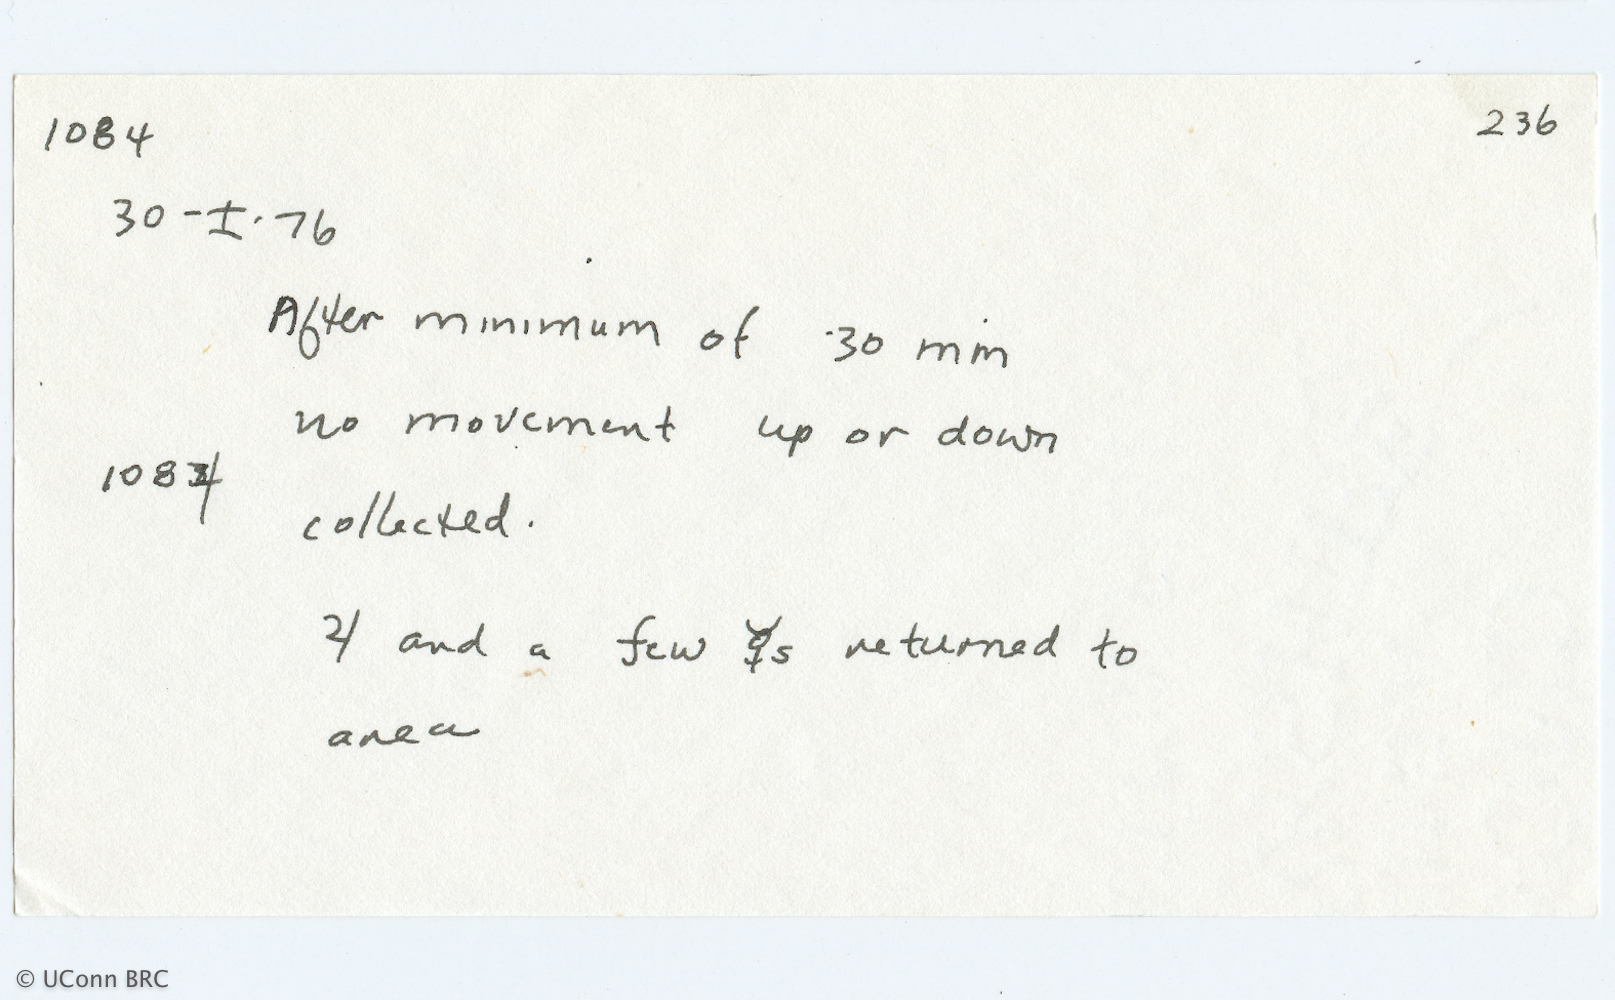 1084 236
30-I-76
After minimum of 30 min
no movement up or down
1084 collected.
♃ and a few ☿s returned to
area
© UConn BRC